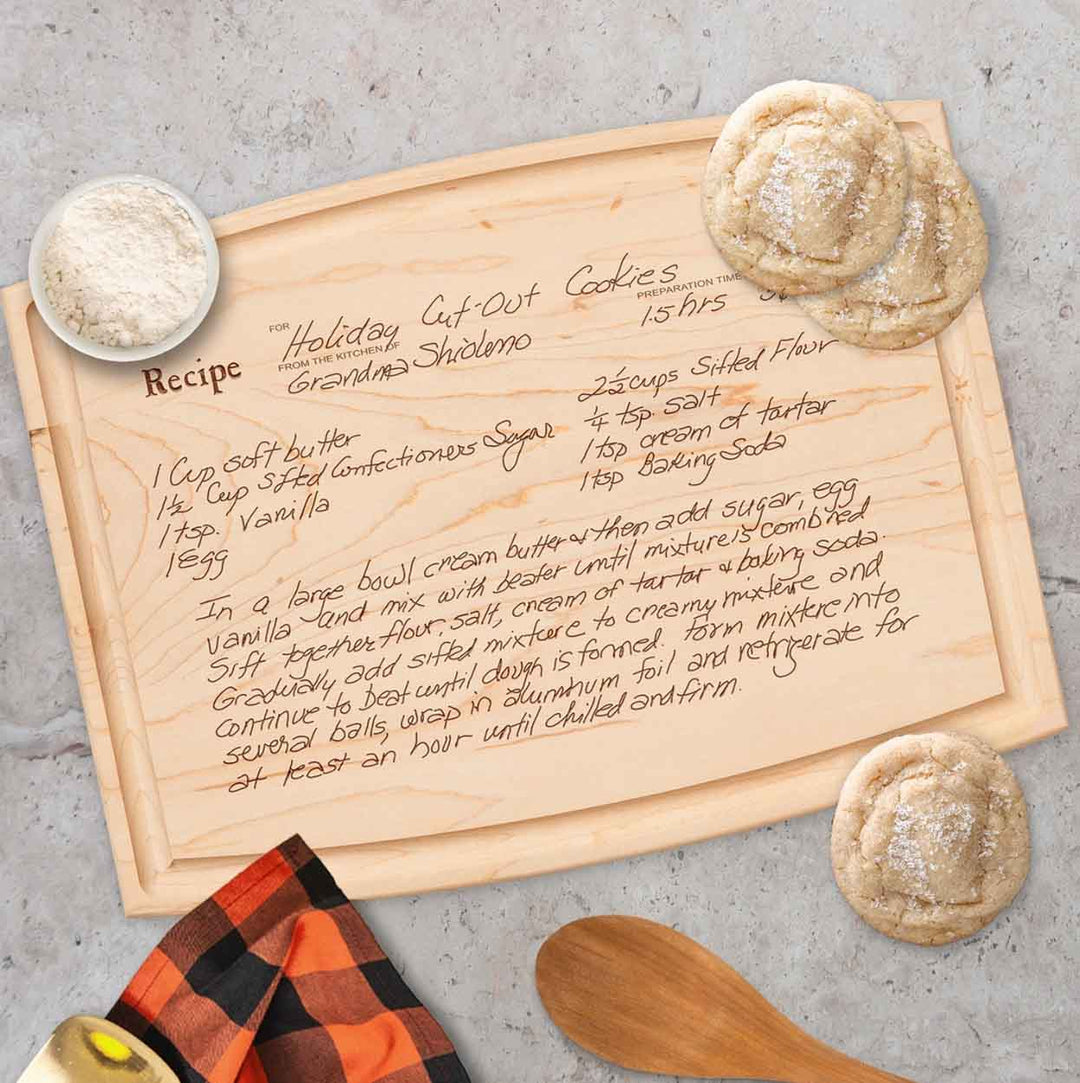 FOR Holiday Cut-Out Cookies
PREPARATION TIME
1.5 hrs
Recipe
FROM THE KITCHEN OF
Grandma
1 Cup soft butter
1½ Cup Sifted Confectioners Sugar
1 tsp. Vanilla
1 egg
2½ cups Sifted Flour
¼ tsp. salt
1 tsp cream of tartar
1 tsp Baking Soda
In a large bowl cream butter & then add sugar, egg
vanilla and mix with beater until mixture is combined
Sift together flour, salt, cream of tartar & baking soda.
Gradually add sifted mixture to creamy mixture and
continue to beat until dough is formed. Form mixture into
several balls, wrap in aluminum foil and refrigerate for
at least an hour until chilled and firm.